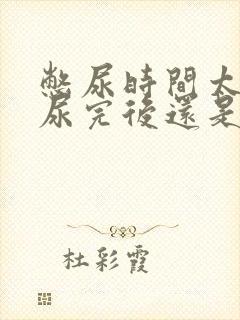 憋尿時間太
尿完後還是
杜彩霞